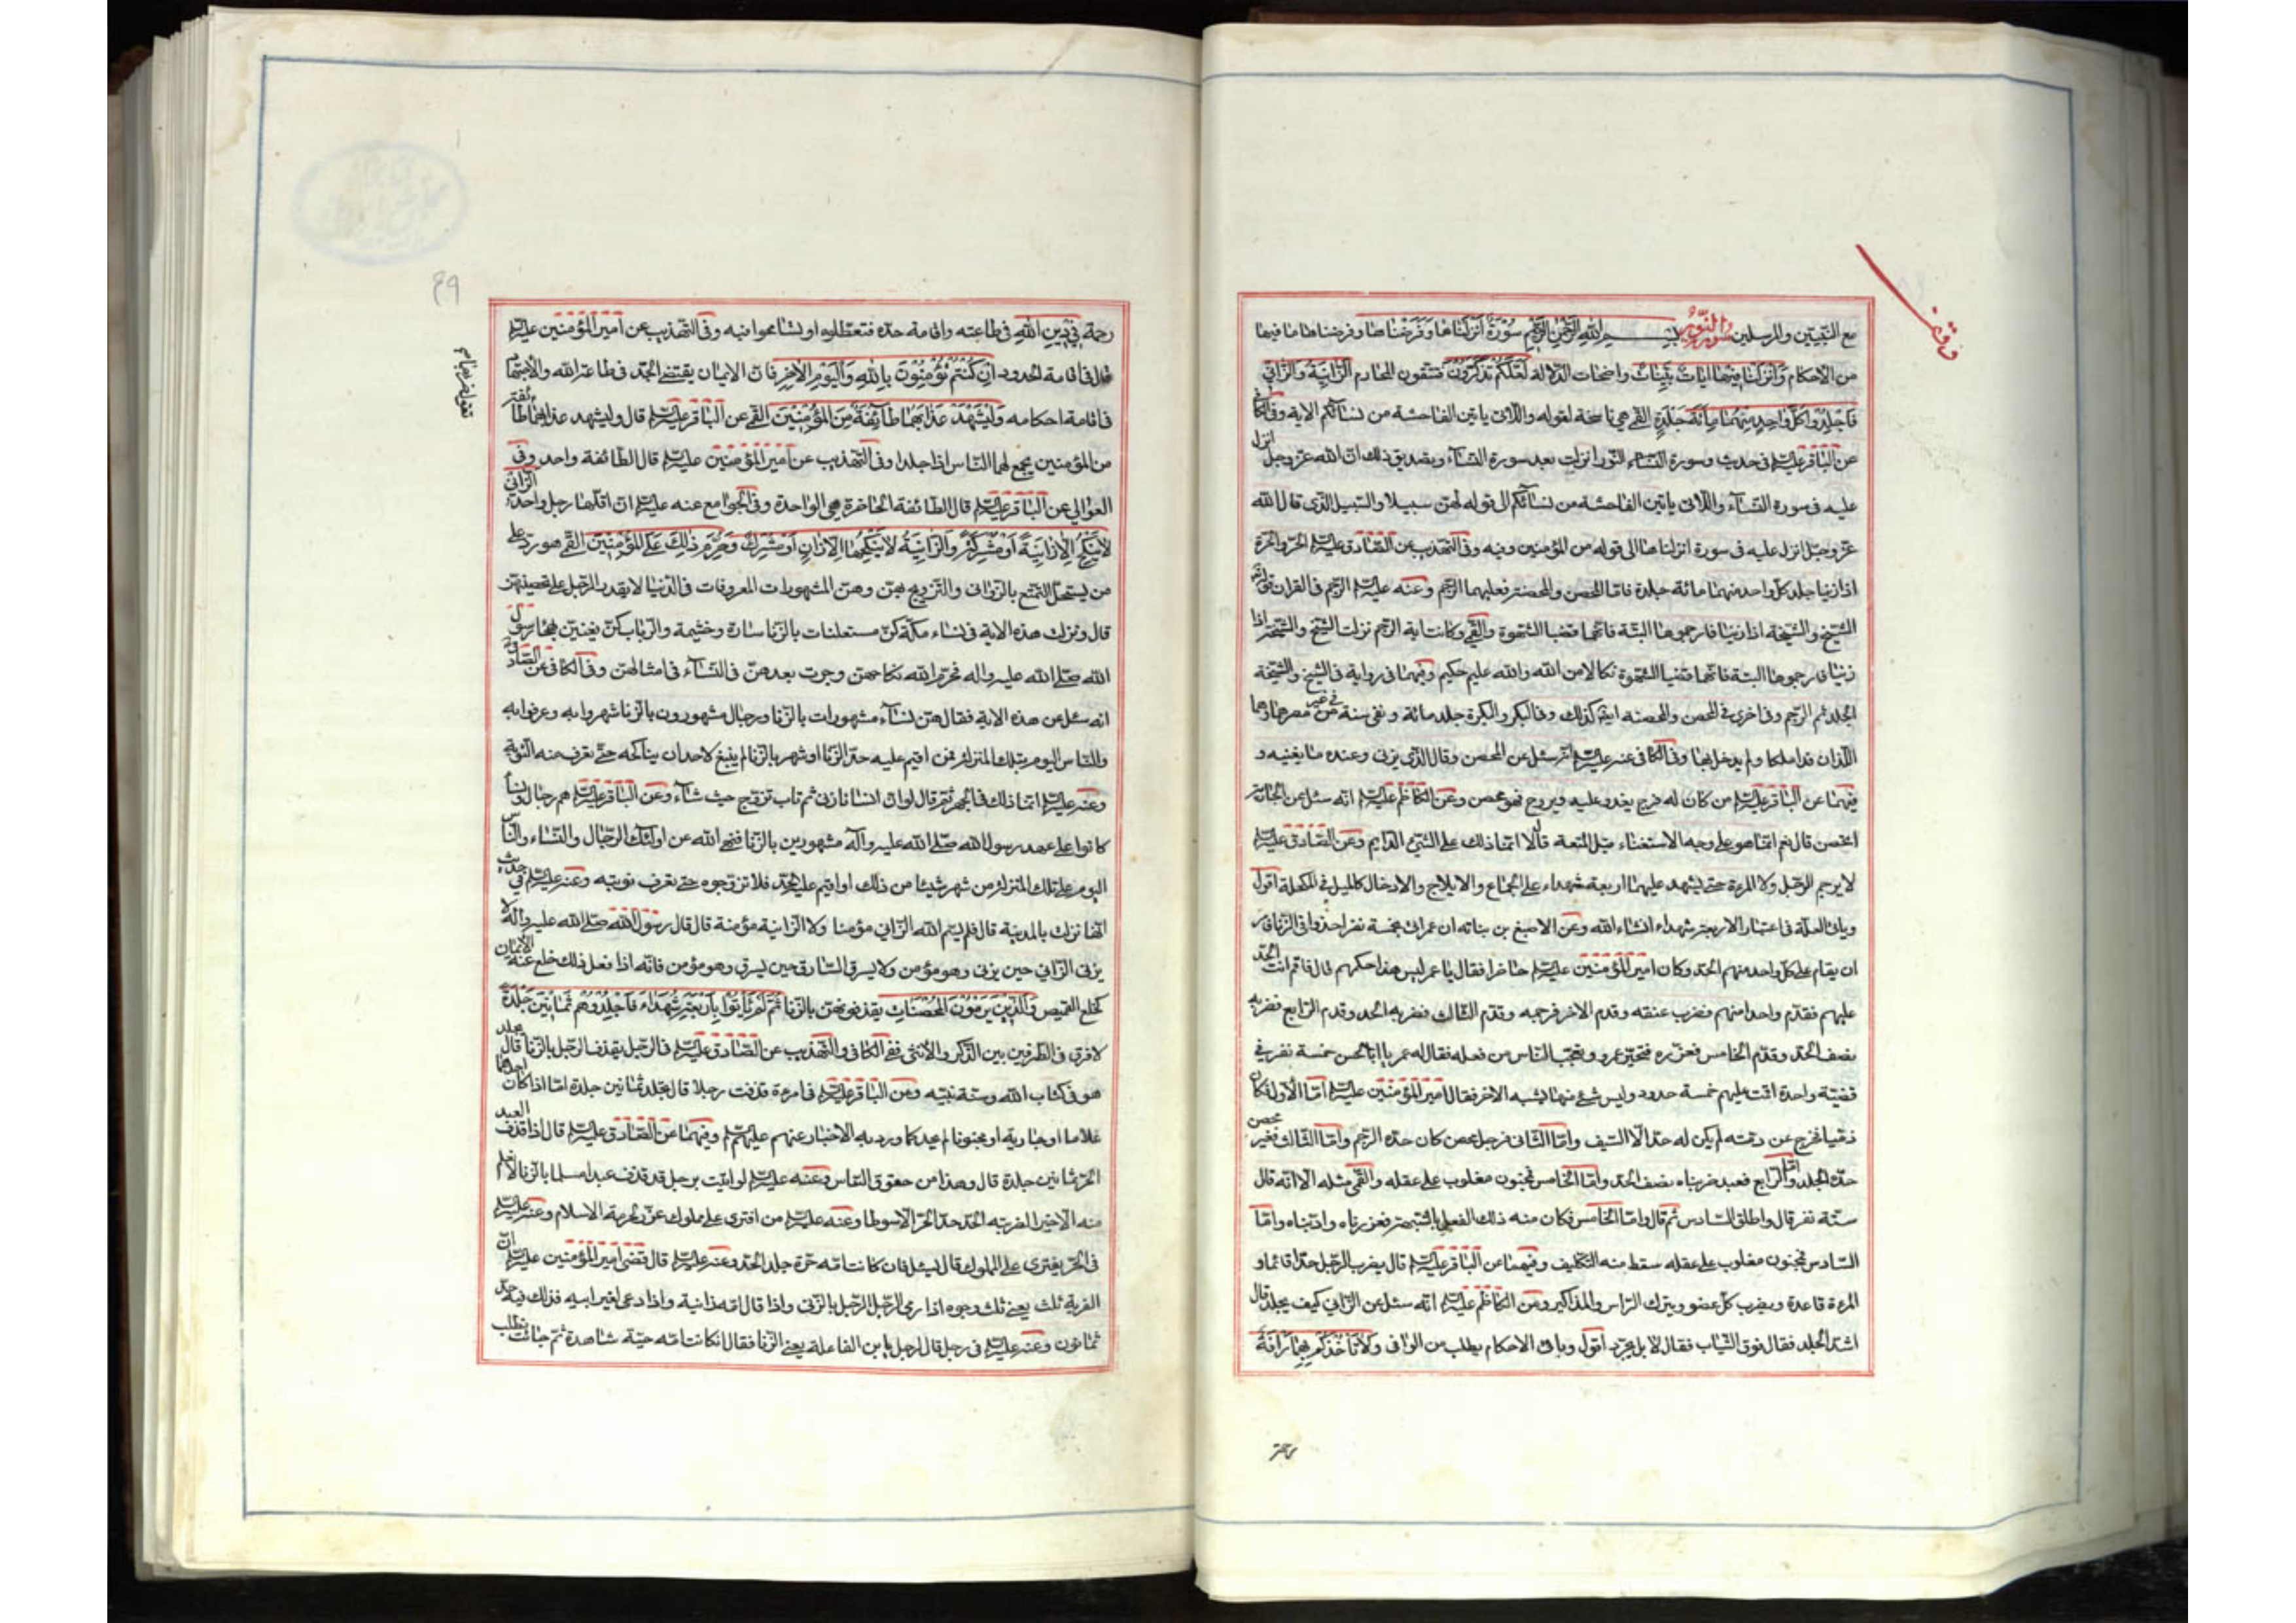 مع النبيين والمرسلين سورة النور بسم الله الرحمن الرحيم سورة أنزلناها وفرضناها وفرضنا ما فيها
من الاحكام وأنزلنا فيها ايات بينات واضحات الدلالة لعلكم تذكرون فتتقون المحارم الزانية والزاني
فاجلدوا كل واحد منهما مائة جلدة القمي هي ناسخة لقوله واللاتي ياتين الفاحشة من نسائكم الاية وفي الكافي
عن الباقر عليه السلم في حديث وسورة النور انزلت بعد سورة النساء وتصديق ذلك ان الله عز وجل انزل
عليه في سورة النساء واللاتي ياتين الفاحشة من نسائكم الى قوله لهن سبيلا والسبيل الذي قال الله
عز وجل انزل عليه في سورة انزلناها الى قوله من المؤمنين وفيه وفي التهذيب عن الصادق عليه السلم الحر والحرة
اذا زنيا جلد كل واحد منهما مائة جلدة فاما المحصن والمحصنة فعليهما الرجم وعنه عليه السلم الرجم في القران قوله
الشيخ والشيخة اذا زنيا فارجموهما البتة فانهما قضيا الشهوة والقمي وكانت اية الرجم نزلت الشيخ والشيخة اذا
زنيا فارجموهما البتة فانهما قضيا الشهوة نكالا من الله والله عليم حكيم وفيهما في رواية في الشيخ والشيخة
الجلد ثم الرجم وفي اخرى في المحصن والمحصنة ايضا كذلك وفي البكر والبكرة جلد مائة ونفي سنة في غير مصرهما وهما
اللذان قد املكا ولم يدخل بها وفي الكافي عنه عليه السلم انه سئل عن المحصن وقال الذي يزني وعنده ما يغنيه و
فيهما عن الباقر عليه السلم من كان له فرج يغدو عليه ويروح فهو محصن وعن الكاظم عليه السلم انه سئل عن الجارية
اتحصن قال نعم انما هو على وجه الاستغناء قيل المتعة قال لا انما ذلك على الشيء الدايم وعن الصادق عليه السلم
لا يرجم الرجل ولا المرءة حتى يشهد عليهما اربعة شهداء على الجماع والايلاج والادخال كالميل في المكحلة اقول
وياتي العلة في اعتبار الاربعة شهداء انشاء الله وعن الاصبغ بن نباته ان عمر اتي بخمسة نفر اخذوا في الزنا فامر
ان يقام على كل واحد منهم الحد وكان امير المؤمنين عليه السلم حاضرا فقال يا عمر ليس هذا حكمهم قال فاقم انت الحد
عليهم فقدم واحدا منهم فضرب عنقه وقدم الاخر فرجمه وقدم الثالث فضربه الحد وقدم الرابع فضربه
نصف الحد وقدم الخامس فعزره فتحير عمر وتعجب الناس من فعله فقال له عمر يا ابا الحسن خمسة نفر في
قضية واحدة اقمت عليهم خمسة حدود وليس شيء منها يشبه الاخر فقال امير المؤمنين عليه السلم اما الاول فكان
ذميا فخرج عن ذمته لم يكن له حد الا السيف واما الثاني فرجل محصن كان حده الرجم واما الثالث فغير محصن
حده الجلد واما الرابع فعبد ضربناه نصف الحد واما الخامس مجنون مغلوب على عقله والقمي مثله الا انه قال
ستة نفر قال واطلق السادس ثم قال واما الخامس فكان منه ذلك الفعل بالشبهة فعزرناه وادبناه واما
السادس مجنون مغلوب على عقله سقط منه التكليف وفيهما عن الباقر عليه السلم قال يضرب الرجل حدا قائما و
المرءة قاعدة ويضرب كل عضو ويترك الراس والمذاكير وعن الكاظم عليه السلم انه سئل عن الزاني كيف يجلد قال
اشد الجلد فقال فوق الثياب فقال لا بل يجرد اقول وباقي الاحكام يطلب من الوافي ولا تأخذكم بهما رأفة
رحمة في دين الله في طاعته واقامة حده فتعطلوه او تسامحوا فيه وفي التهذيب عن امير المؤمنين عليه السلم
قال في اقامة الحدود ان كنتم تؤمنون بالله واليوم الاخر فان الايمان يقتضي الجد في طاعة الله والاجتهاد
في اقامة احكامه وليشهد عذابهما طائفة من المؤمنين القمي عن الباقر عليه السلم قال وليشهد عذابهما طائفة
من المؤمنين يجمع لهما الناس اذا جلدا وفي التهذيب عن امير المؤمنين عليه السلم قال الطائفة واحد وفي
العوالي عن الباقر عليه السلم قال الطائفة الحاضرة هي الواحدة وفي الجوامع عنه عليه السلم ان اقلها رجل واحد الزاني
لا ينكح الا زانية أو مشركة والزانية لا ينكحها الا زان أو مشرك وحرم ذلك على المؤمنين القمي هو رد على
من يستحل التمتع بالزواني والتزويج بهن وهن المشهورات المعروفات في الدنيا لا يقدر الرجل على تحصينهن
قال ونزلت هذه الاية في نساء مكة كن مستعلنات بالزنا سارة وخثيمة والرباب كن يغنين بهجاء رسول
الله صلى الله عليه واله فحرم الله نكاحهن وجرت بعدهن في النساء في امثالهن وفي الكافي عن الصادق
انه سئل عن هذه الاية فقال هن نساء مشهورات بالزنا ورجال مشهورون بالزنا شهروا به وعرفوا به
والناس اليوم بتلك المنزلة فمن اقيم عليه حد الزنا او شهر بالزنا لم ينبغ لاحد ان يناكحه حتى يعرف منه التوبة
وعنه عليه السلم انما ذلك في الجهر ثم قال لو ان انسانا زنى ثم تاب تزوج حيث شاء وعن الباقر عليه السلم هم رجال ونساء
كانوا على عهد رسول الله صلى الله عليه وآله مشهورين بالزنا فنهى الله عن اولئك الرجال والنساء والناس
اليوم على تلك المنزلة من شهر شيئا من ذلك او اقيم عليه الحد فلا تزوجوه حتى تعرف توبته وعنه عليه السلم في حديث
انها نزلت بالمدينة قال فلم يسم الله الزاني مؤمنا ولا الزانية مؤمنة قال قال رسول الله صلى الله عليه وآله لا
يزني الزاني حين يزني وهو مؤمن ولا يسرق السارق حين يسرق وهو مؤمن فانه اذا فعل ذلك خلع عنه الايمان
كخلع القميص والذين يرمون المحصنات يقذفونهن بالزنا ثم لم يأتوا بأربعة شهداء فاجلدوهم ثمانين جلدة
لا فرق في الطرفين بين الذكر والانثى ففي الكافي والتهذيب عن الصادق عليه السلم في الرجل يقذف الرجل بالزنا قال يجلد
هو في كتاب الله وسنة نبيه وعن الباقر عليه السلم في امرءة قذفت رجلا قال تجلد ثمانين جلدة اما اذا كان احدهما
غلاما او جارية او مجنونا لم يحد كما ورد به الاخبار عنهم عليهم السلم وفيهما عن الصادق عليه السلم قال اذا قذف العبد
الحر ثمانين جلدة قال وهذا من حقوق الناس وعنه عليه السلم لو اتيت برجل قد قذف عبدا مسلما بالزنا لا نعلم
منه الا خيرا لضربته الحد حد الحر الا سوطا وعنه عليه السلم من افترى على مملوك عزر لحرمة الاسلام وعنه عليه السلم
في الحر يفتري على المملوك قال يسئل فان كانت امه حرة جلد الحد وعنه عليه السلم قال قضى امير المؤمنين عليه السلم ان
الفرية ثلث يعني ثلث وجوه اذا رمى الرجل الرجل بالزنى واذا قال امه زانية واذا دعى لغير ابيه فذلك فيه حد
ثمانون وعنه عليه السلم في رجل قال لرجل يا بن الفاعلة يعني الزنا فقال ان كانت امه حية شاهدة ثم جائت تطلب